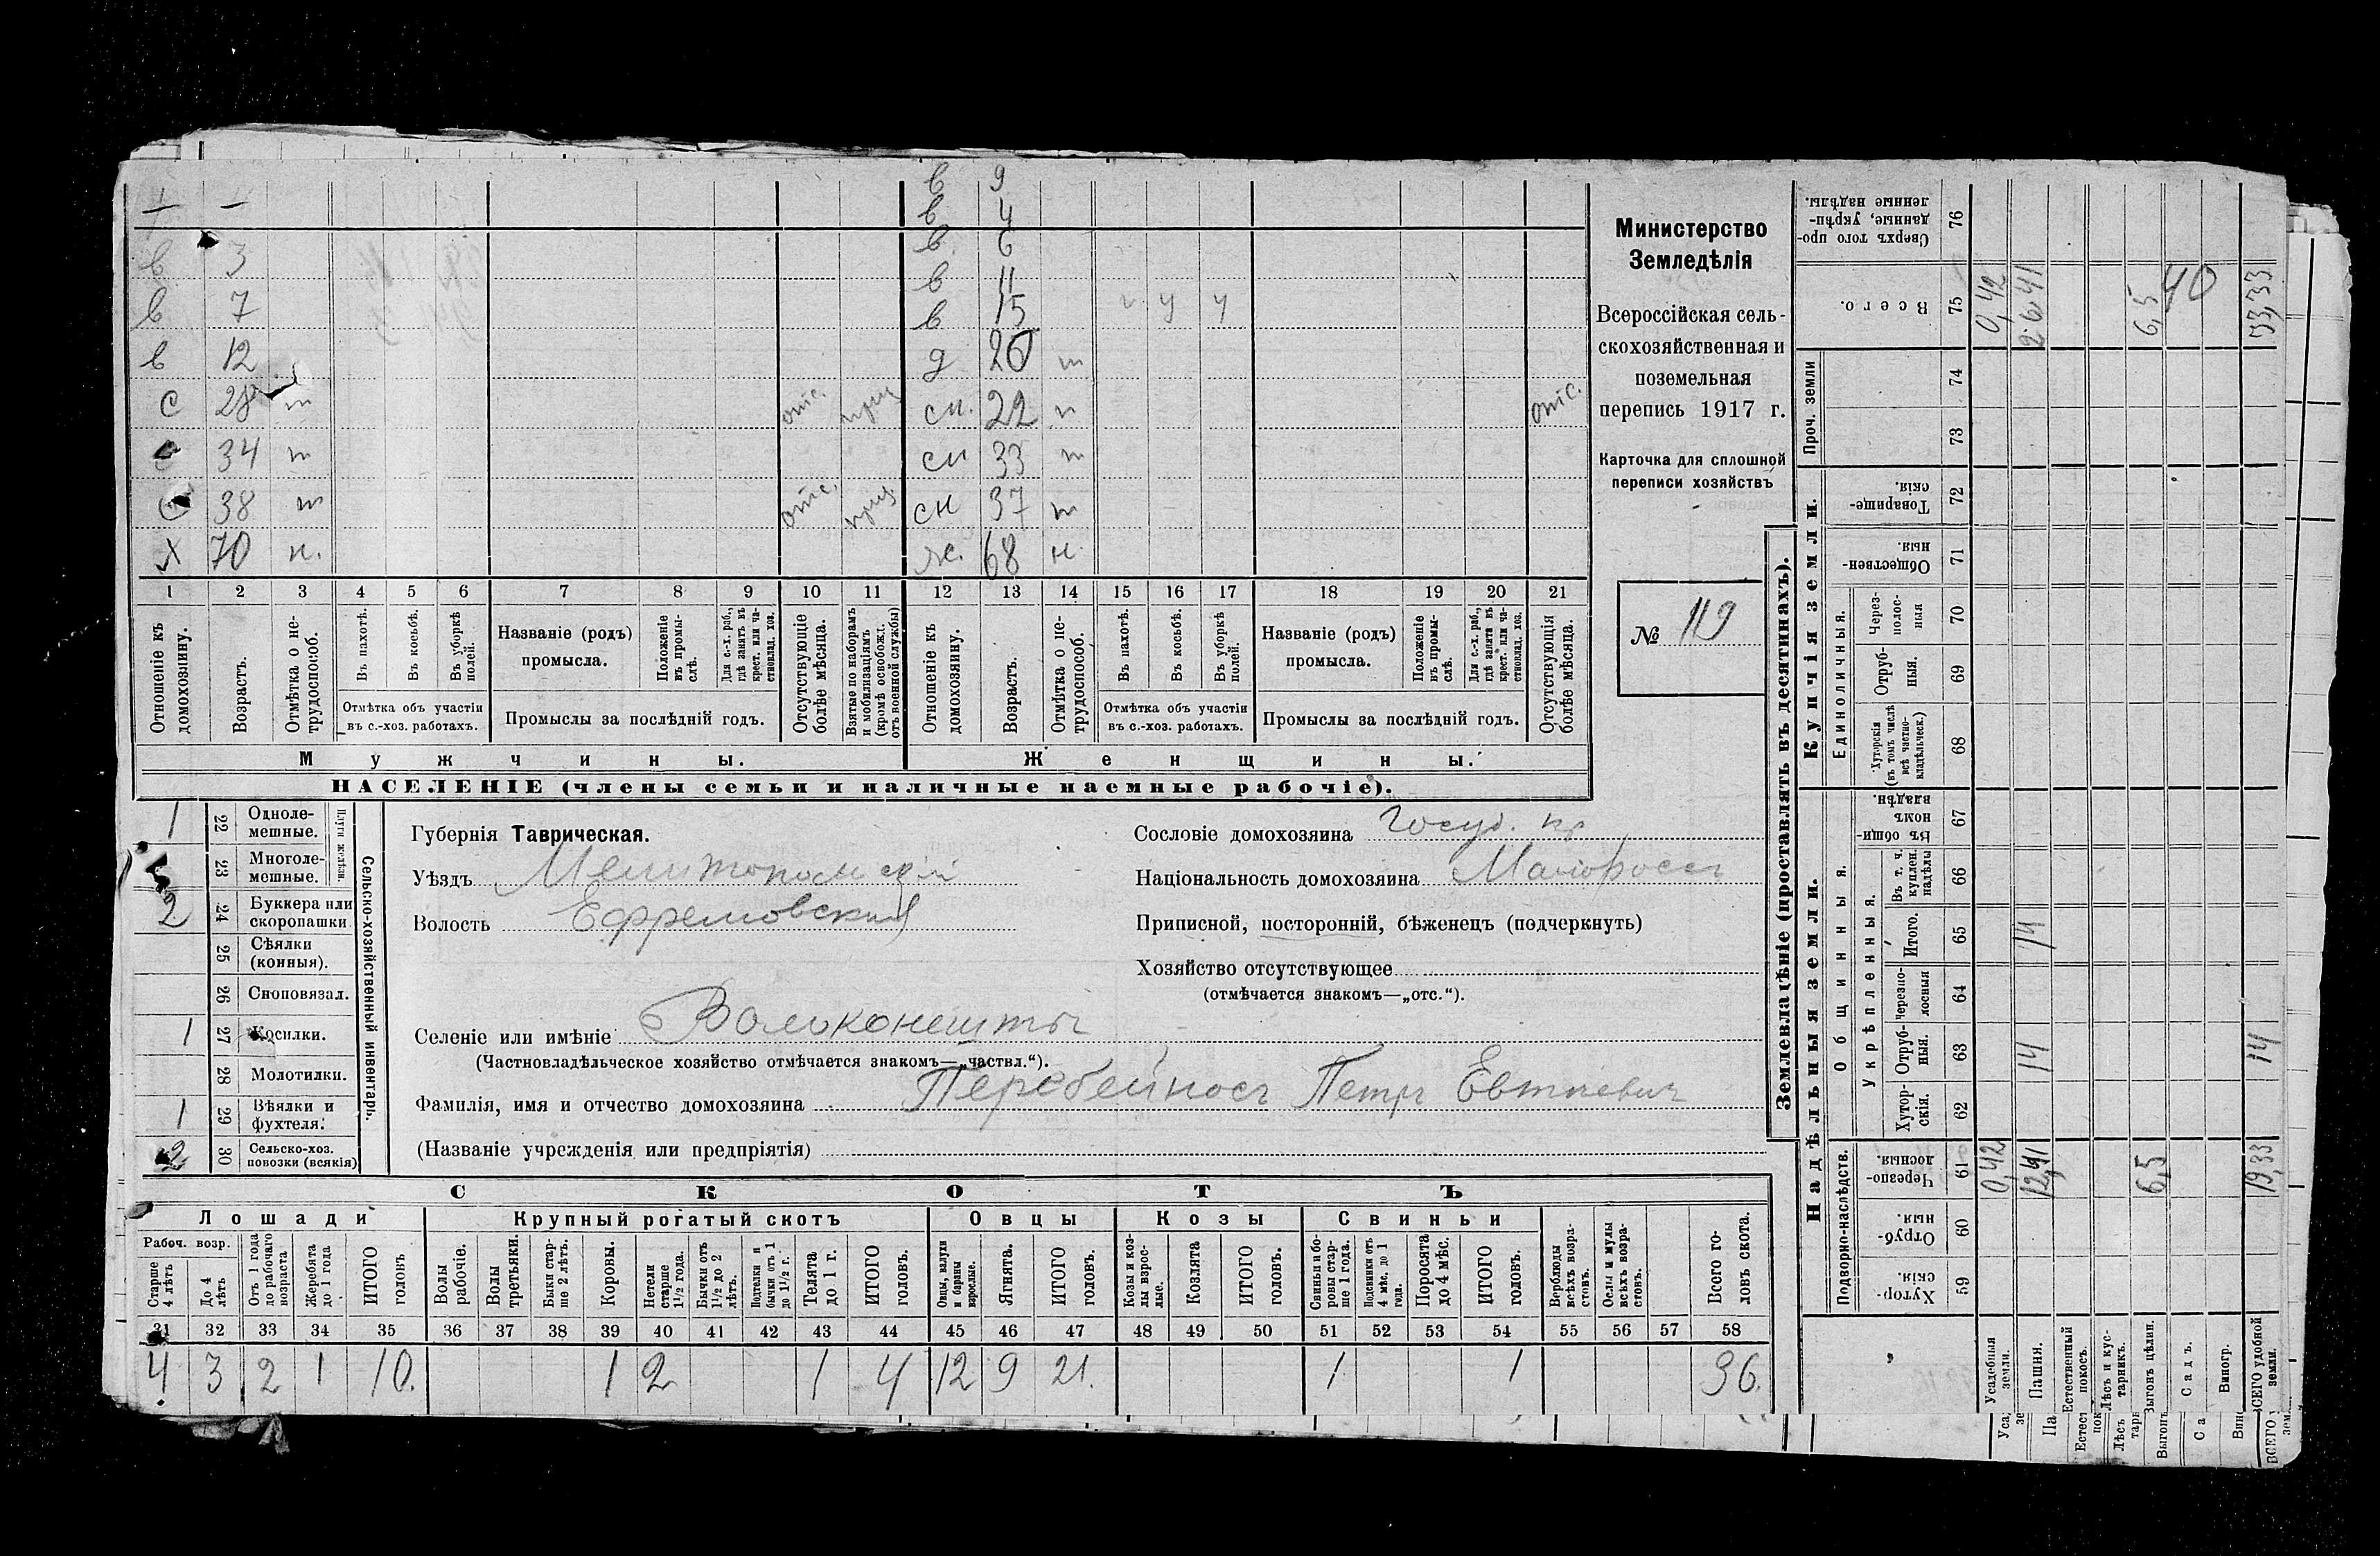 в 9
+ — в 4
в 3 в 6
в 11
в 7 в 15 ч ч ч
в 12 д 20 т
с 28 т отс. приз сн. 22 т отс.
с 34 т сн 33 т
с 38 т отс. приз сн 37 т
х 70 н. ж. 68 н.
1 2 3 4 5 6 7 8 9 10 11 12 13 14 15 16 17 18 19 20 21
Отношеніе къ домохозяину.
Возрастъ.
Отмѣтка о нетрудоспособ.
Въ пахотѣ.
Въ косьбѣ.
Въ уборкѣ полей.
Отмѣтка объ участіи
въ с.-хоз. работахъ.
Названіе (родъ)
промысла.
Положеніе въ промыслѣ.
Для с.-х. раб., гдѣ занятъ въ крест. или частновлад. хоз.
Промыслы за послѣдній годъ.
Отсутствующіе болѣе мѣсяца.
Взятые по наборамъ и мобилизаціямъ (кромѣ освобожд. отъ военной службы)
Отношеніе къ домохозяину.
Возрастъ.
Отмѣтка о нетрудоспособ.
Въ пахотѣ.
Въ косьбѣ.
Въ уборкѣ полей.
Отмѣтка объ участіи
въ с.-хоз. работахъ.
Названіе (родъ)
промысла.
Положеніе въ промыслѣ.
Для с.-х. раб., гдѣ занята въ крест. или частновлад. хоз.
Промыслы за послѣдній годъ.
Отсутствующія болѣе мѣсяца.
Мужчины. Женщины.
НАСЕЛЕНІЕ (члены семьи и наличные наемные рабочіе).
Министерство
Земледѣлія
Всероссійская сель-
скохозяйственная и
поземельная
перепись 1917 г.
Карточка для сплошной
переписи хозяйствъ
№ 119
1 22 Одноле-
мешные.
23 Многоле-
мешные.
Плуги желѣзн.
2 24 Буккера или
скоропашки
25 Сѣялки
(конныя).
26 Сноповязал.
1 27 Косилки.
28 Молотилки.
1 29 Вѣялки и
фухтеля.
2 30 Сельско-хоз.
повозки (всякія)
Сельско-хозяйственный инвентарь.
Губернія Таврическая.
Уѣздъ Мелитопольскій
Волость Ефремовская
Селеніе или имѣніе Волоконешты
(Частновладѣльческое хозяйство отмѣчается знакомъ—„частвл.“).
Фамилія, имя и отчество домохозяина Перебейносъ Петръ Евтіевич
(Названіе учрежденія или предпріятія)
Сословіе домохозяина Госуд. кр
Національность домохозяина Малороссъ
Приписной, посторонній, бѣженецъ (подчеркнуть)
Хозяйство отсутствующее
(отмѣчается знакомъ—„отс.“).
СКОТЪ
Лошади Крупный рогатый скотъ Овцы Козы Свиньи
Рабоч. возр.
Старше 4 лѣтъ
До 4 лѣтъ
Отъ 1 года до рабочаго возраста
Жеребята до 1 года
ИТОГО головъ
Волы рабочіе.
Волы третьяки.
Быки старше 2 лѣтъ.
Коровы.
Нетели старше 1½ года.
Бычки отъ 1½ до 2 лѣтъ.
Подтелки и бычки отъ 1 до 1½ г.
Телята до 1 г.
ИТОГО головъ.
Овцы, валухи и бараны взрослые.
Ягнята.
ИТОГО головъ.
Козы и козлы взрослые.
Козлята
ИТОГО головъ.
Свиньи и боровы старше 1 года.
Подсвинки отъ 4 мѣс. до 1 года.
Поросята до 4 мѣс.
ИТОГО головъ.
Верблюды всѣхъ возрастовъ.
Ослы и мулы всѣхъ возрастовъ.
Всего головъ скота.
31 32 33 34 35 36 37 38 39 40 41 42 43 44 45 46 47 48 49 50 51 52 53 54 55 56 57 58
4 3 2 1 10. 1 2 1 4 12 9 21. 1 1 36.
Землевладѣніе (проставлять въ десятинахъ).
Надѣльныя земли. Купчія земли.
Подворно-наслѣдств.
Общинныя.
Укрѣпленныя.
Единоличныя.
Проч. земли
Хуторскія. 59
Отрубныя. 60
Черезполосныя. 61
Хуторскія. 62
Отрубныя. 63
Черезполосныя 64
Итого. 65
Въ т. ч. куплен. надѣлы 66
Въ общинномъ владѣн. 67
Хуторскія (въ томъ числѣ всѣ частновладѣльческ.) 68
Отрубныя. 69
Черезполосныя 70
Общественныя. 71
Товарищескія. 72
73
74
Всего. 75
Сверхъ того проданные, укрѣпленные надѣлы. 76
Усадебныя земли. 0,42 0,42
Пашня. 12,41 14 14 26 41
Естественный покосъ.
Лѣсъ и кустарникъ.
Выгонъ цѣлин. 6,5 6,5
Садъ. 40
Виногр.
ВСЕГО удобной земли. 19,33 14 33,33